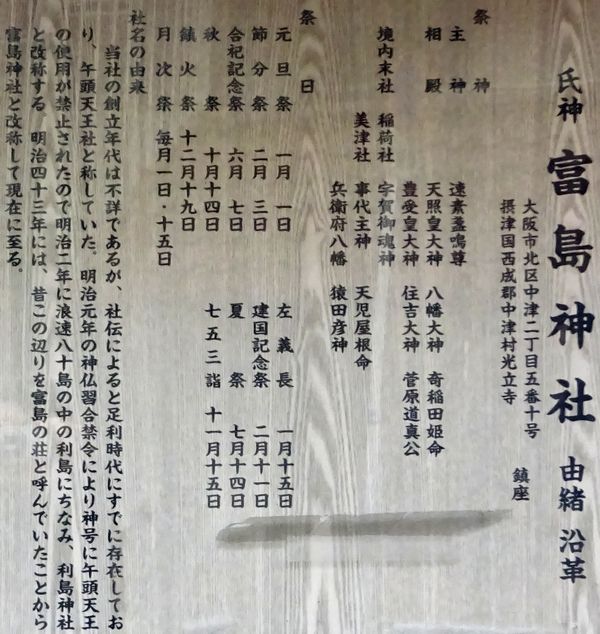 氏神 富島神社 由緒 沿革
大阪市北区中津二丁目五番十号
摂津国西成郡中津村光立寺 鎮座
祭神
主神 速素盞鳴尊
相殿 天照皇大神 八幡大神 奇稲田姫命
豊受皇大神 住吉大神 菅原道真公
境内末社 稲荷社 宇賀御魂神
美津社 事代主神 天児屋根命
兵衛府八幡 猿田彦神
祭日
元旦祭 一月一日 左義長 一月十五日
節分祭 二月三日 建国記念祭 二月十一日
合祀記念祭 六月七日 夏祭 七月十四日
秋祭 十月十四日 七五三詣 十一月十五日
鎮火祭 十二月十九日
月次祭 毎月一日・十五日
社名の由来
当社の創立年代は不詳であるが、社伝によると足利時代にすでに存在してお
り、午頭天王社と称していた。明治元年の神仏習合禁令により神号に午頭天王
の使用が禁止されたので明治二年に浪速八十島の中の利島にちなみ、利島神社
と改称する 明治四十三年には、昔この辺りを富島の荘と呼んでいたことから
富島神社と改称して現在に至る。